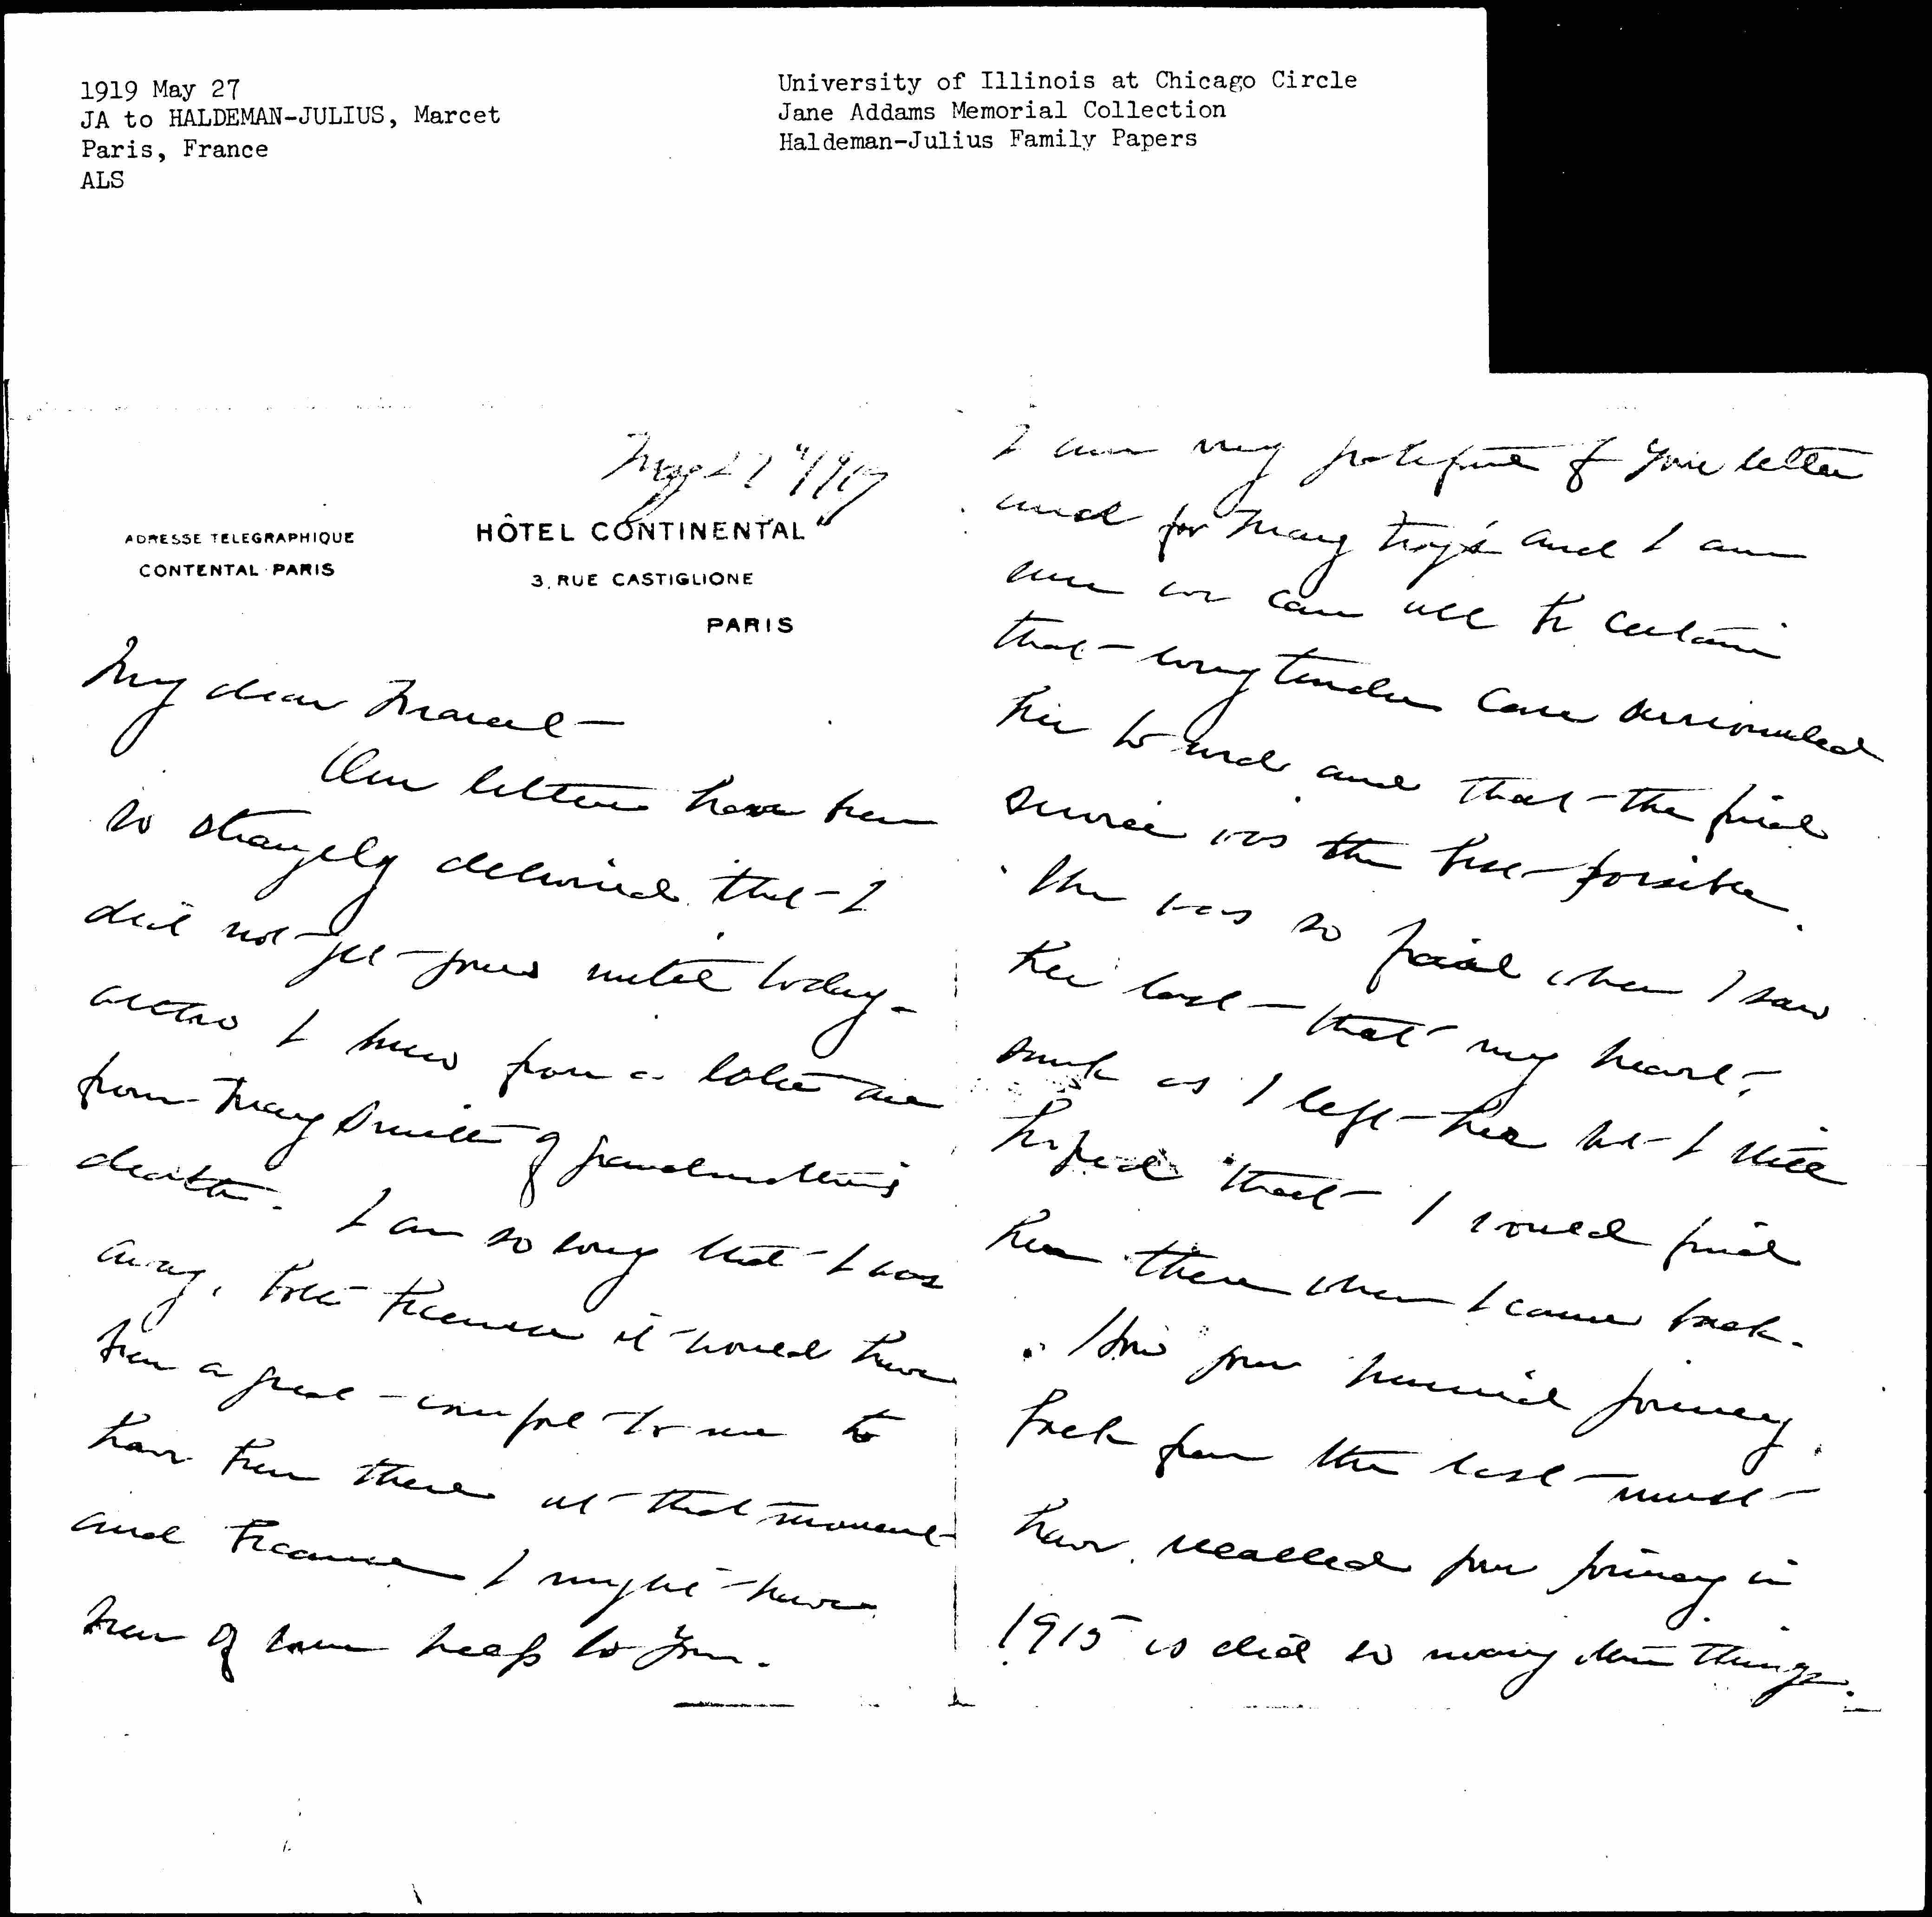 1919 May 27
JA to HALDEMAN-JULIUS, Marcet
Paris, France
ALS
University of Illinois at Chicago Circle
Jane Addams Memorial Collection
Haldeman-Julius Family Papers
May 27" 1919
ADRESSE TELEGRAPHIQUE
CONTENTAL · PARIS
HÔTEL CONTINENTAL
3, RUE CASTIGLIONE
PARIS
My dear Marcet —
Our letters have been
so strangely delivered that I
did not get yours until today —
altho I knew from a later one
from Mary Smith of grandmother's
death. I am so sorry that I was
away, both because it would have
been a great comfort to me to
have been there at that moment
and because I might have
been of some help to you.
I am very grateful for your letter
and for Mary and I am
sure we can all be certain
that loving tender care surrounded
her to end and that the final
service was the best possible.
She was so frail when I saw
her last that my heart
sunk as I left her but I still
hoped that I would find
her there when I came back.
How your hurried journey
back from the last must
have recalled your journey in
1915 as did so many other things.